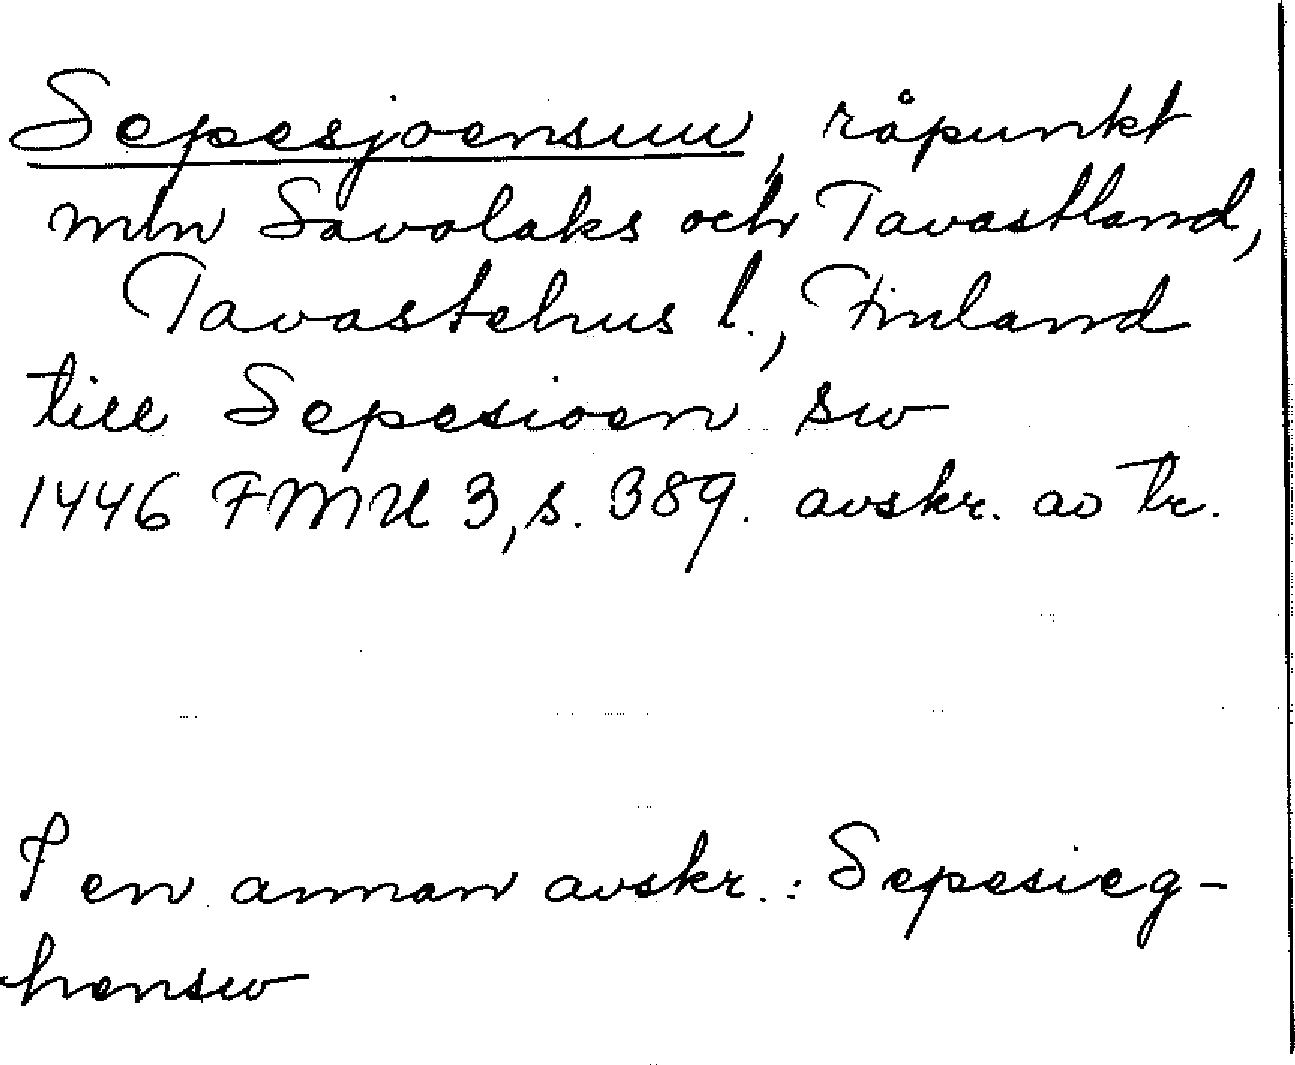 Sepesjoensuu, råpunkt
mln Savolaks och Tavastland,
Tavastehus l., Finland
till Sepesioen sw
1446 FMU 3, s. 389. avskr. av tr.
I en annan avskr.: Sepesieg-
hensw